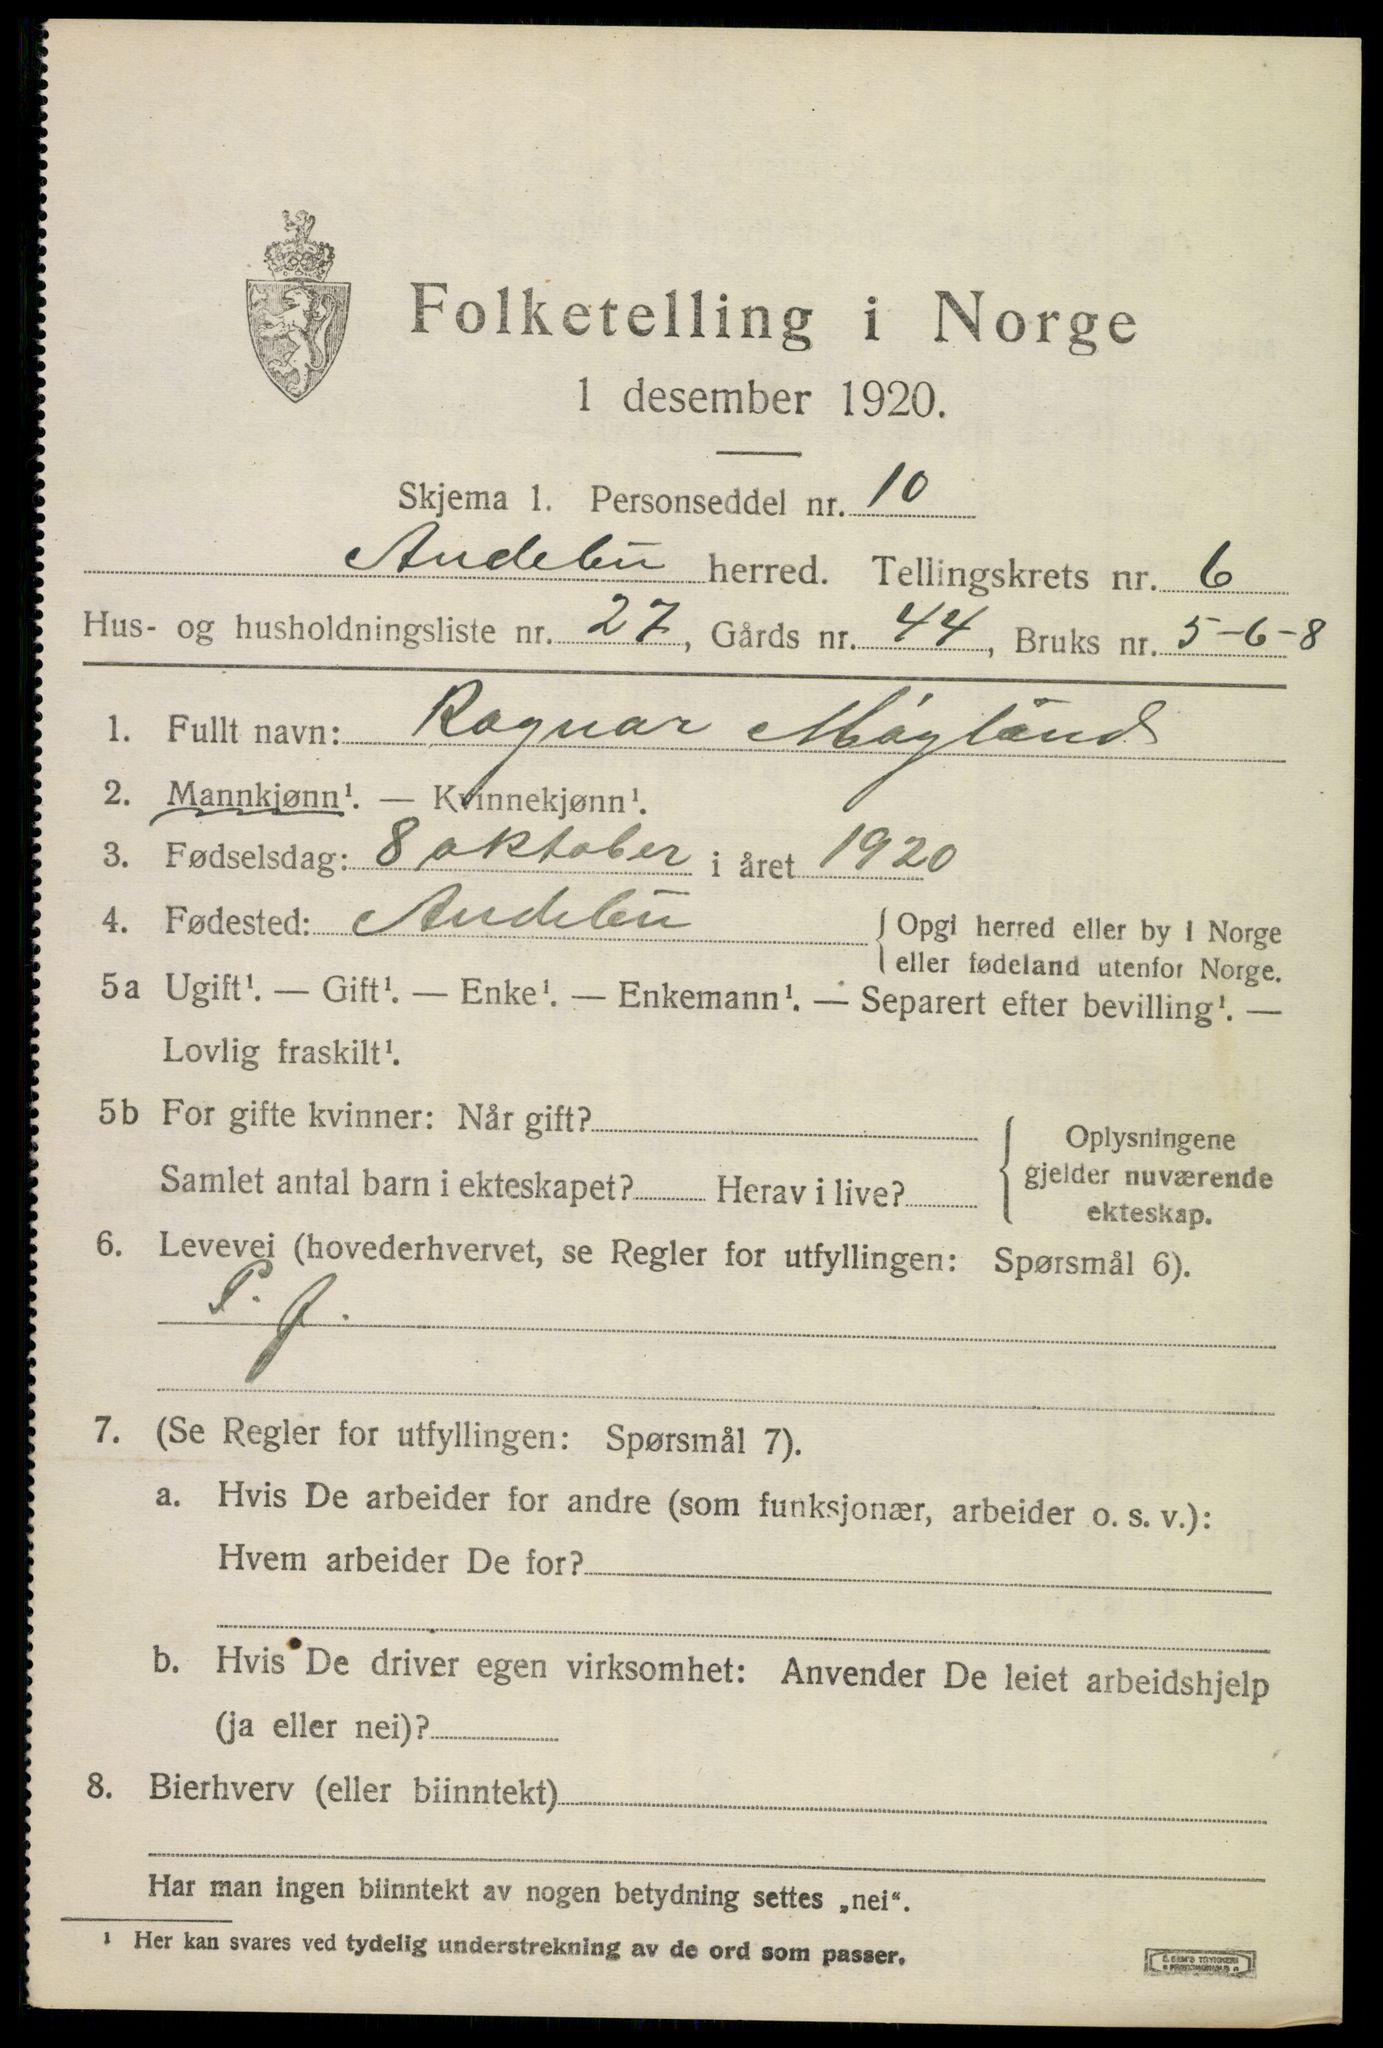 Folketelling i Norge
1 desember 1920.
Skjema 1. Personseddel nr. 10
Andebu herred. Tellingskrets nr. 6
Hus- og husholdningsliste nr. 27, Gårds nr. 44, Bruks nr. 5-6-8
1. Fullt navn: Ragnar Møyland
2. Mannkjønn¹. — Kvinnekjønn¹.
3. Fødselsdag: 8 oktober i året 1920
4. Fødested: Andebu { Opgi herred eller by i Norge
eller fødeland utenfor Norge.
5a Ugift¹. — Gift¹. — Enke¹. — Enkemann¹. — Separert efter bevilling¹. —
Lovlig fraskilt¹.
5b For gifte kvinner: Når gift?
Samlet antal barn i ekteskapet? Herav i live?
{ Oplysningene
gjelder nuværende
ekteskap.
6. Levevei (hovederhvervet, se Regler for utfyllingen: Spørsmål 6).
P. f.
7. (Se Regler for utfyllingen: Spørsmål 7).
a. Hvis De arbeider for andre (som funksjonær, arbeider o. s. v.):
Hvem arbeider De for?
b. Hvis De driver egen virksomhet: Anvender De leiet arbeidshjelp
(ja eller nei)?
8. Bierhverv (eller biinntekt)
Har man ingen biinntekt av nogen betydning settes „nei“.
¹ Her kan svares ved tydelig understrekning av de ord som passer.